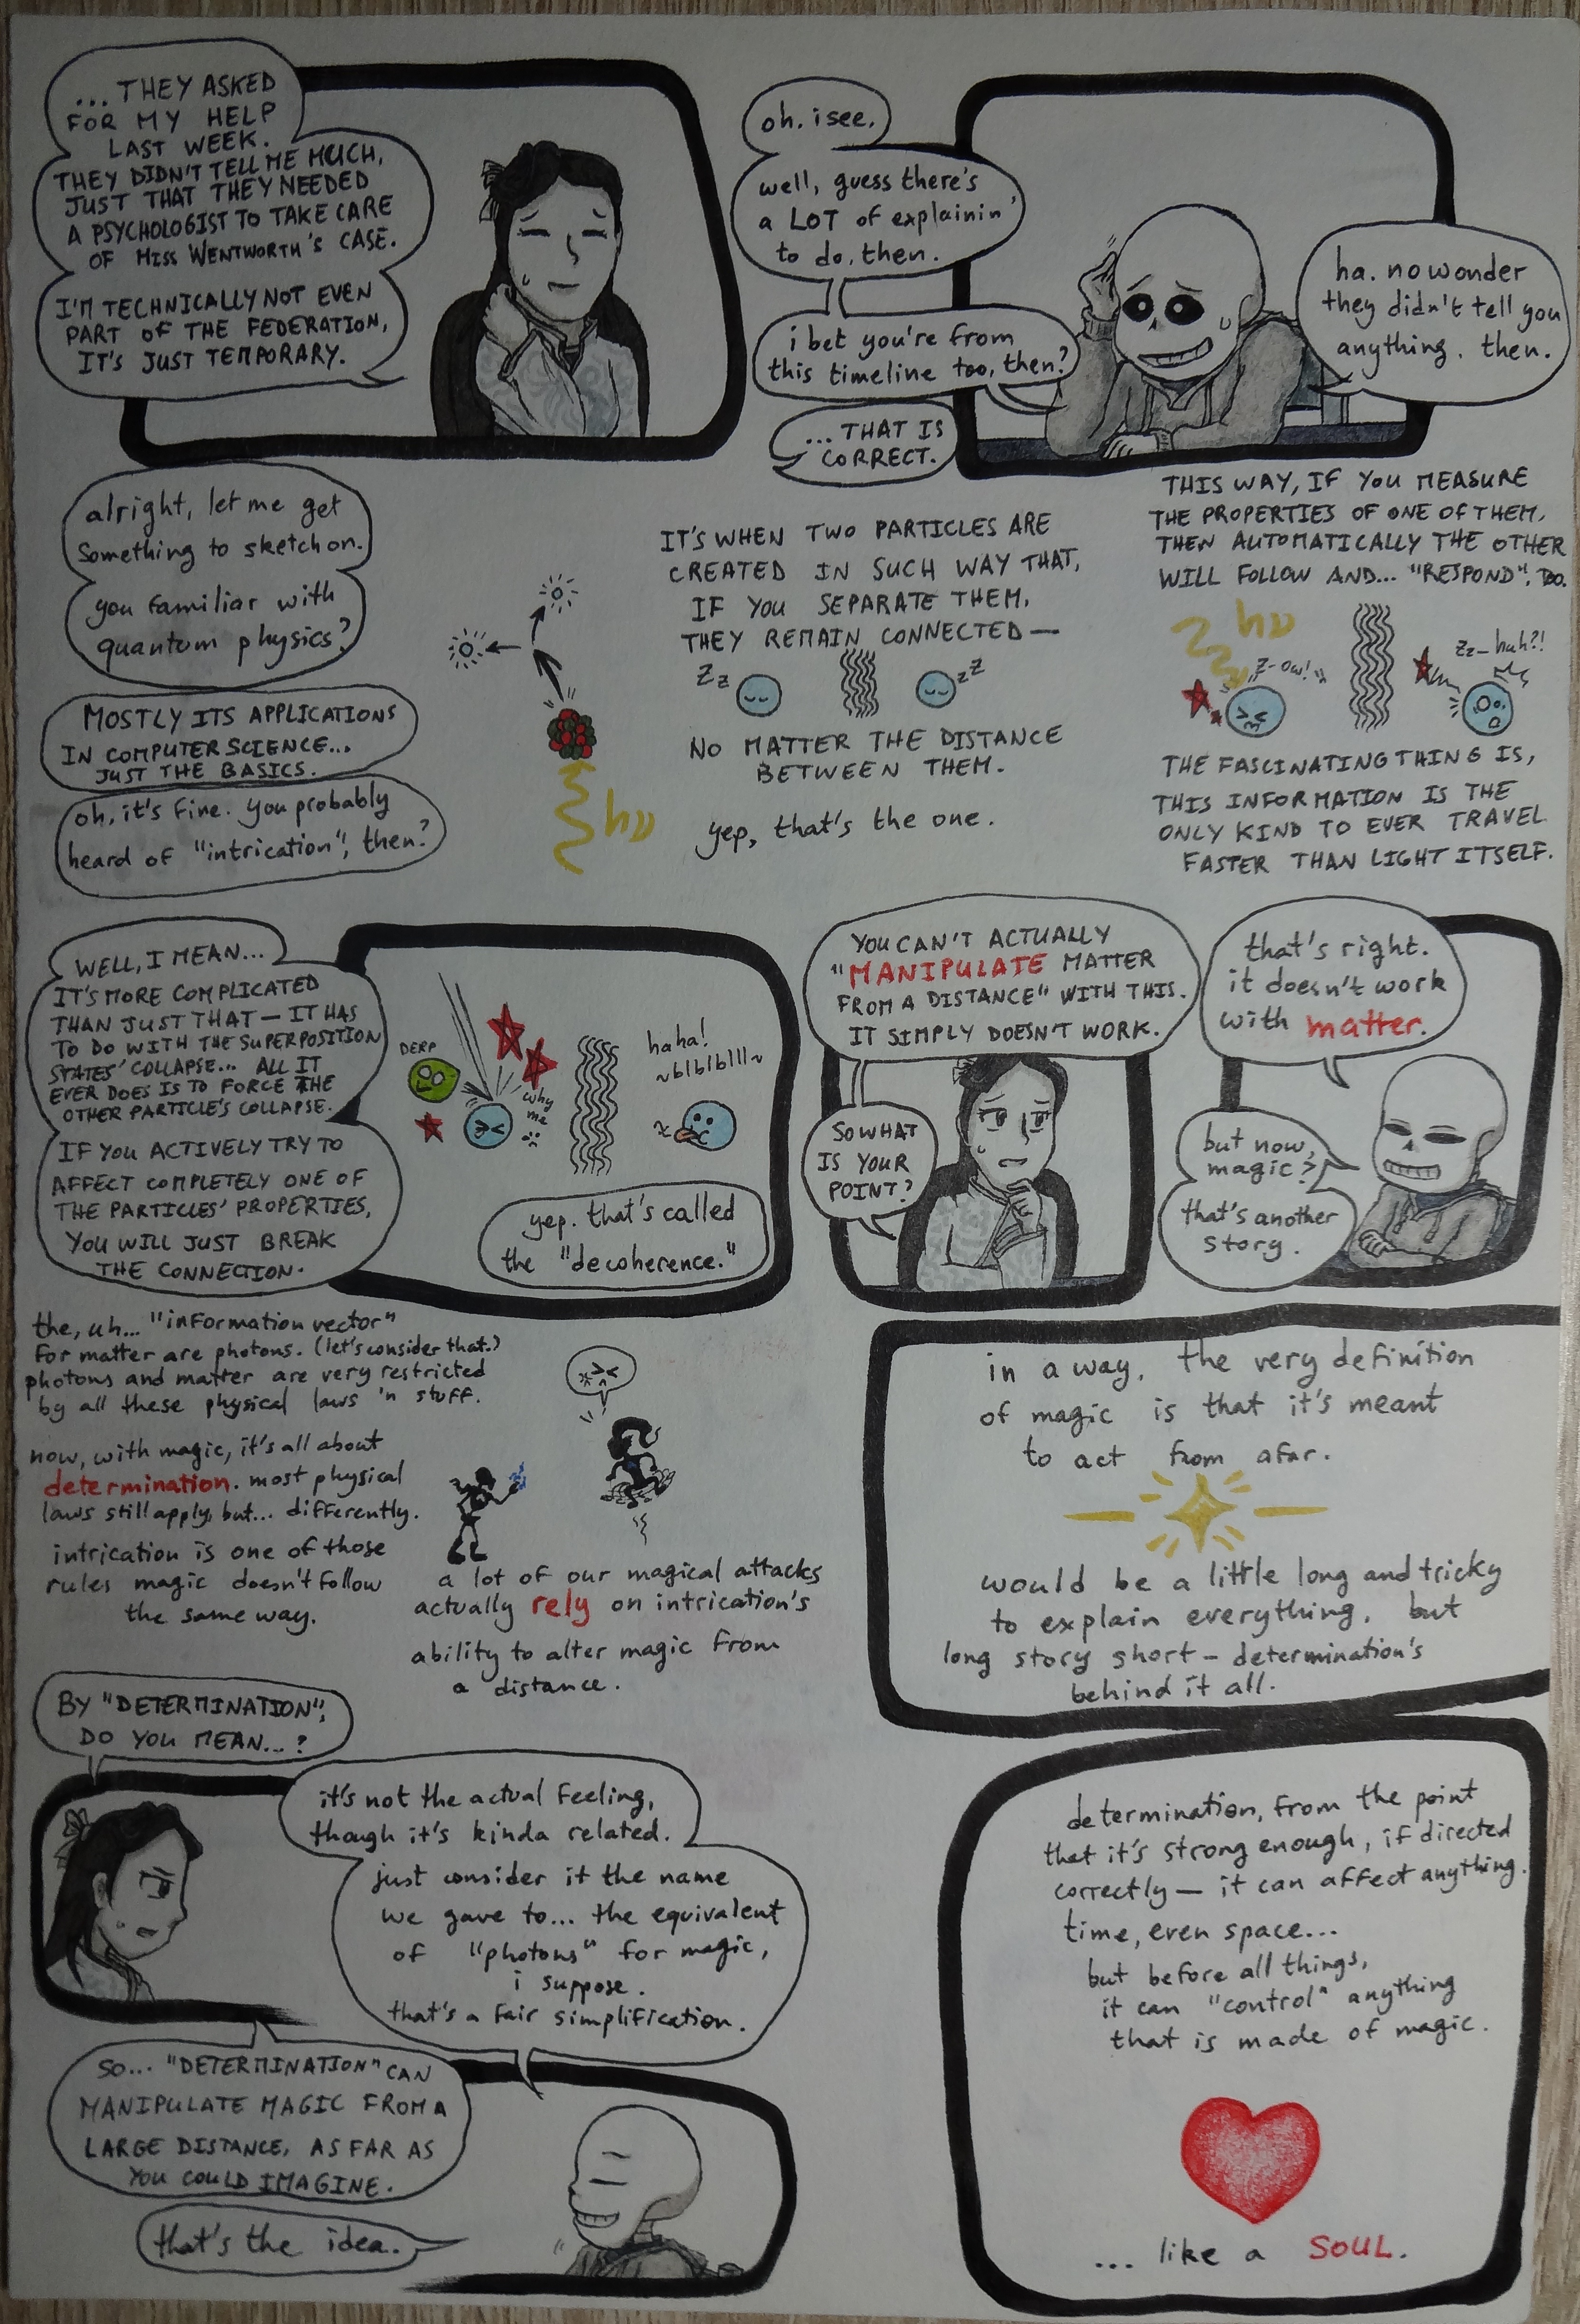 ... THEY ASKED
FOR MY HELP
LAST WEEK.
THEY DIDN'T TELL ME MUCH,
JUST THAT THEY NEEDED
A PSYCHOLOGIST TO TAKE CARE
OF MISS WENTWORTH'S CASE.
I'M TECHNICALLY NOT EVEN
PART OF THE FEDERATION,
IT'S JUST TEMPORARY.
oh. i see.
well, guess there's
a LOT of explainin'
to do, then.
i bet you're from
this timeline too, then?
... THAT IS
CORRECT.
ha. no wonder
they didn't tell you
anything. then.
alright, let me get
something to sketch on.
you familiar with
quantum physics?
MOSTLY ITS APPLICATIONS
IN COMPUTER SCIENCE...
JUST THE BASICS.
oh, it's fine. you probably
heard of "intrication", then?
hν
IT'S WHEN TWO PARTICLES ARE
CREATED IN SUCH WAY THAT,
IF YOU SEPARATE THEM,
THEY REMAIN CONNECTED —
Zz
zZ
NO MATTER THE DISTANCE
BETWEEN THEM.
yep, that's the one.
THIS WAY, IF YOU MEASURE
THE PROPERTIES OF ONE OF THEM,
THEN AUTOMATICALLY THE OTHER
WILL FOLLOW AND... "RESPOND", TOO.
hν
Z-ow!
Zz-huh?!
THE FASCINATING THING IS,
THIS INFORMATION IS THE
ONLY KIND TO EVER TRAVEL
FASTER THAN LIGHT ITSELF.
WELL, I MEAN...
IT'S MORE COMPLICATED
THAN JUST THAT — IT HAS
TO DO WITH THE SUPERPOSITION
STATES' COLLAPSE... ALL IT
EVER DOES IS TO FORCE THE
OTHER PARTICLE'S COLLAPSE.
IF YOU ACTIVELY TRY TO
AFFECT COMPLETELY ONE OF
THE PARTICLES' PROPERTIES,
YOU WILL JUST BREAK
THE CONNECTION.
DERP
why
me
haha!
~blblblll~
yep. that's called
the "decoherence."
YOU CAN'T ACTUALLY
"MANIPULATE MATTER
FROM A DISTANCE" WITH THIS.
IT SIMPLY DOESN'T WORK.
SO WHAT
IS YOUR
POINT?
that's right.
it doesn't work
with matter.
but now,
magic?
that's another
story.
the, uh... "information vector"
for matter are photons. (let's consider that.)
photons and matter are very restricted
by all these physical laws 'n stuff.
now, with magic, it's all about
determination. most physical
laws still apply, but... differently.
intrication is one of those
rules magic doesn't follow
the same way.
a lot of our magical attacks
actually rely on intrication's
ability to alter magic from
a distance.
in a way, the very definition
of magic is that it's meant
to act from afar.
would be a little long and tricky
to explain everything. but
long story short — determination's
behind it all.
BY "DETERMINATION",
DO YOU MEAN...?
it's not the actual feeling,
though it's kinda related.
just consider it the name
we gave to... the equivalent
of "photons" for magic,
i suppose.
that's a fair simplification.
SO... "DETERMINATION" CAN
MANIPULATE MAGIC FROM A
LARGE DISTANCE, AS FAR AS
YOU COULD IMAGINE.
that's the idea.
determination, from the point
that it's strong enough, if directed
correctly — it can affect anything.
time, even space...
but before all things,
it can "control" anything
that is made of magic.
... like a SOUL.